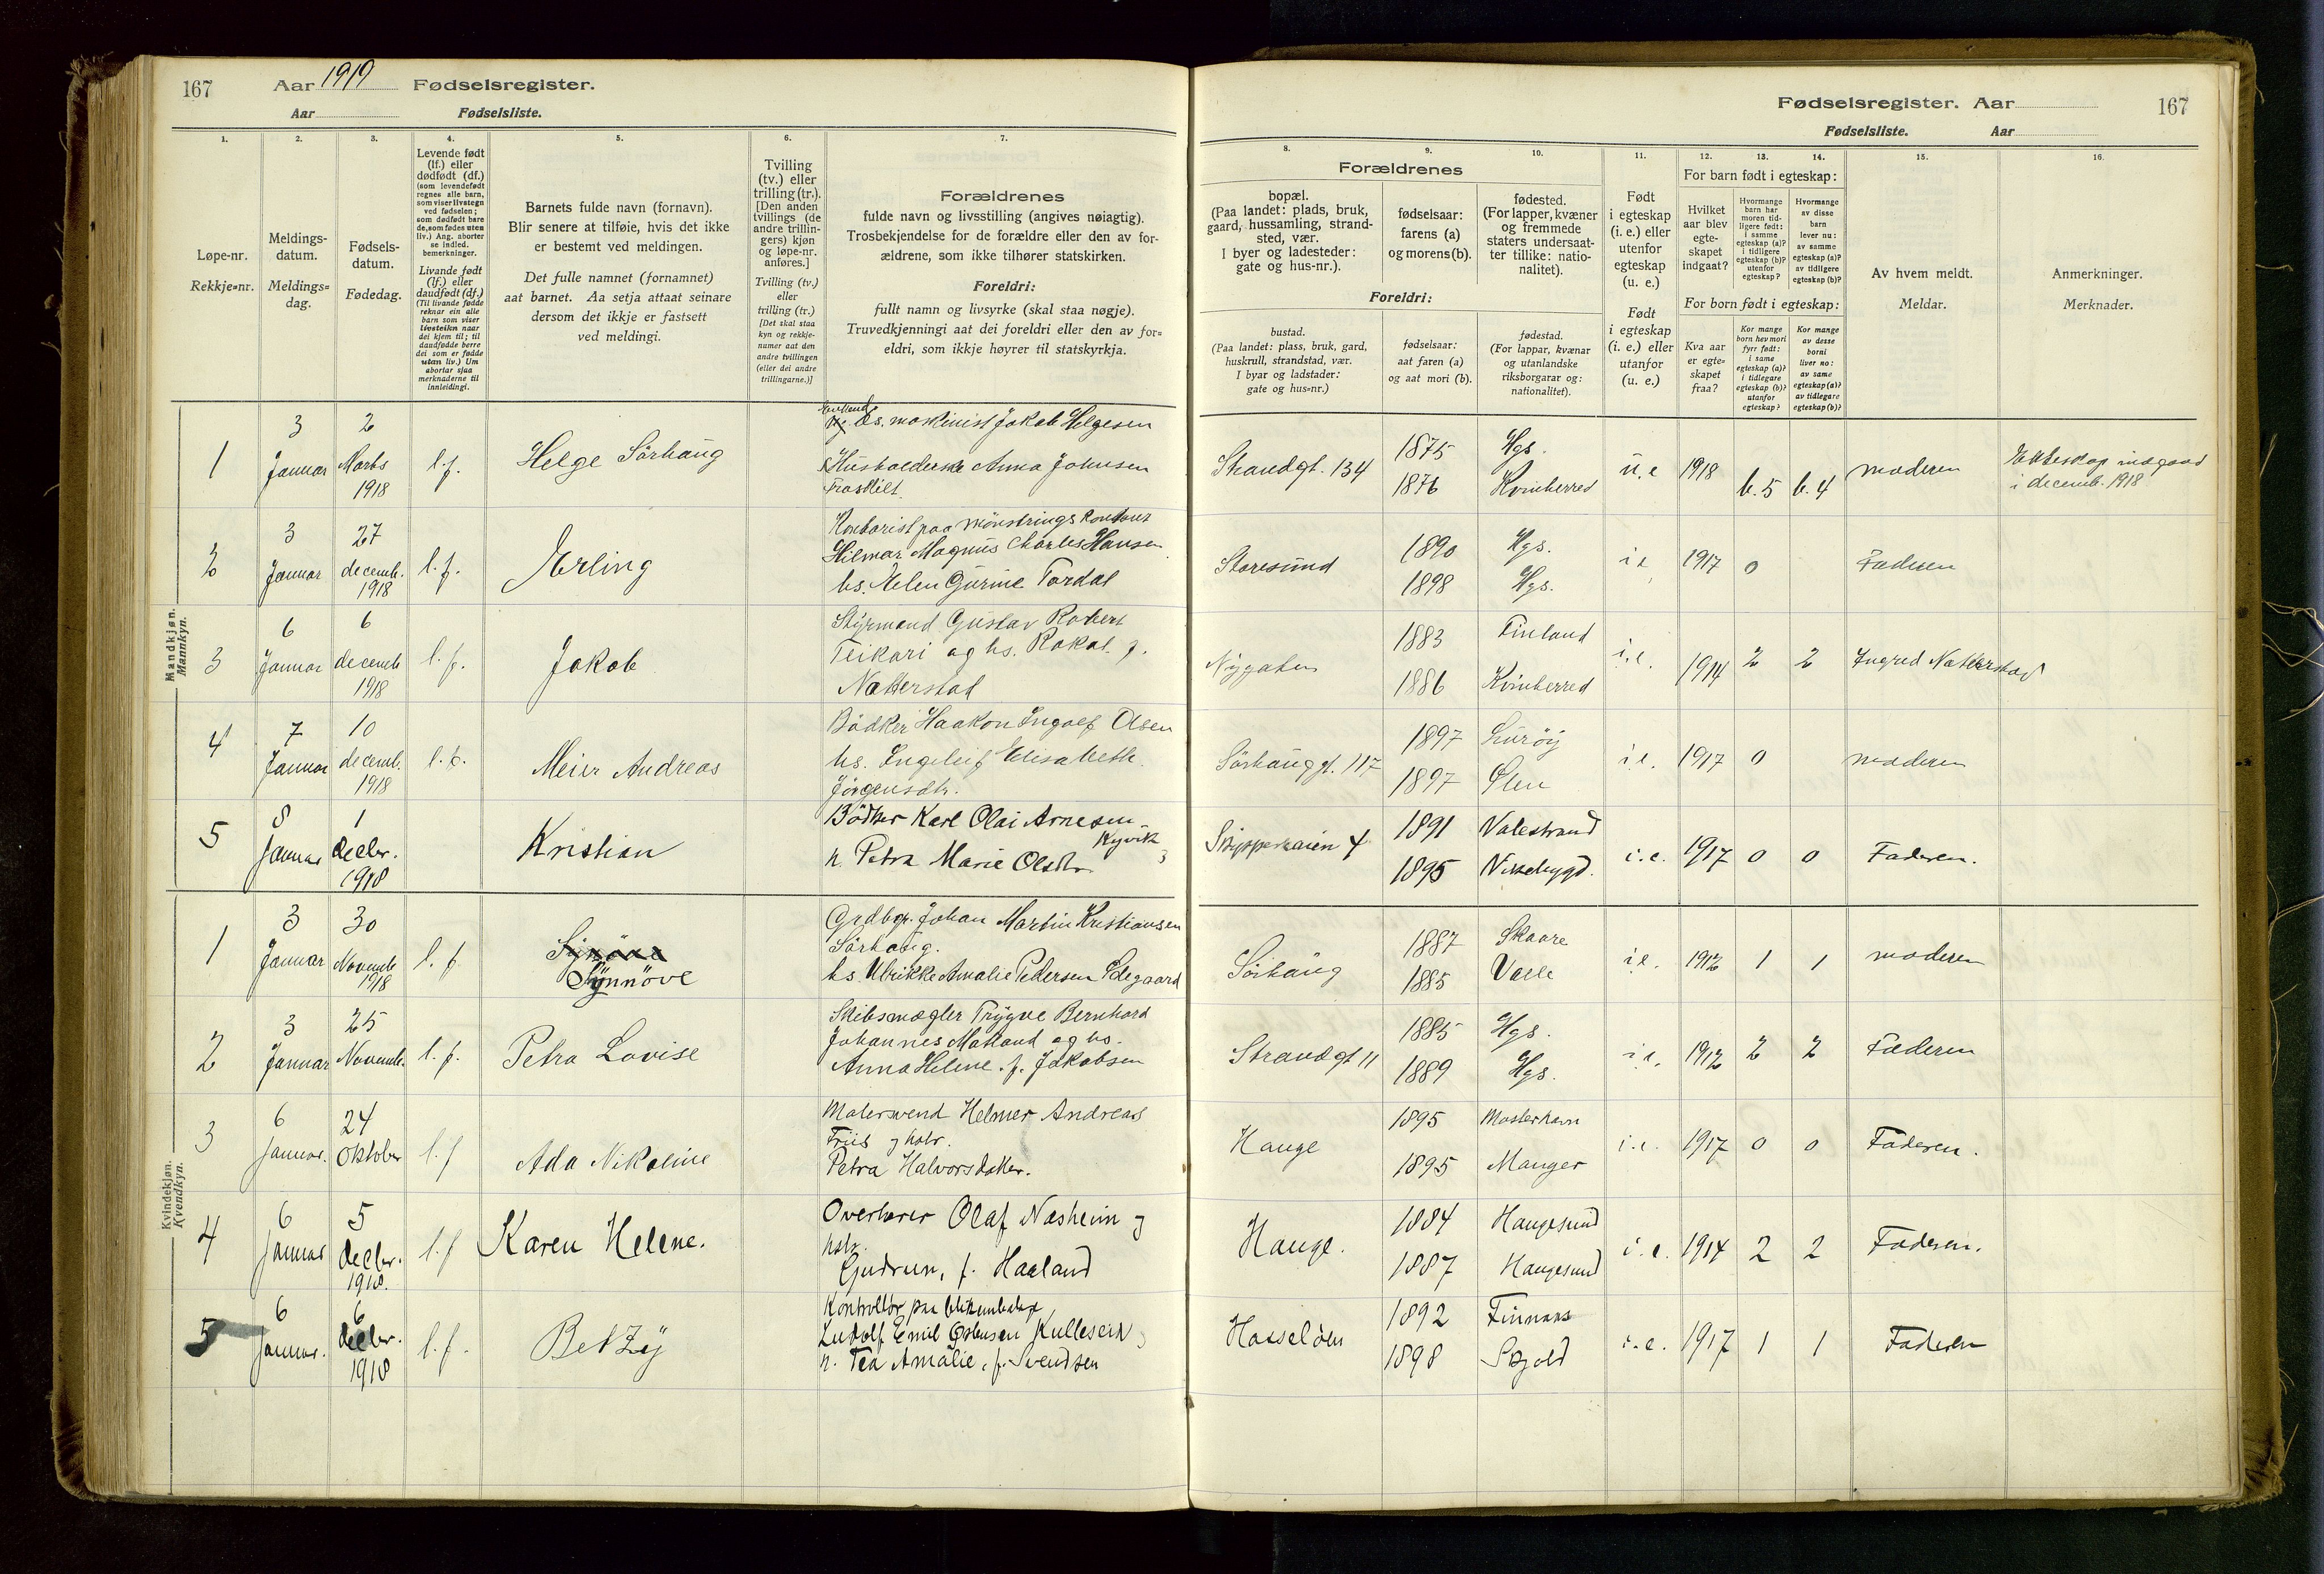 167
Aar 1919 Fødselsregister.
Aar Fødselsliste.
Fødselsregister. Aar
167
Fødselsliste. Aar
1. 2. 3. 4. 5. 6. 7.
Løpe-nr.
Rekkje=nr.
Meldings-
datum.
Meldings=
dag.
Fødsels-
datum.
Fødedag.
Levende født
(lf.) eller
dødfødt (df.)
(som levendefødt
regnes alle barn,
som viser livstegn
ved fødselen;
som dødfødt bare
de, som fødes uten
liv.) Ang. aborter
se indled.
bemerkninger.
Livande født
(lf.) eller
daudfødt (df.)
(Til livande fødde
reknar ein alle
barn som viser
livsteikn naar
dei kjem til; til
daudfødde berre
dei som er fødde
utan liv.) Um
abortar sjaa
merknaderne til
innleidingi.
Barnets fulde navn (fornavn).
Blir senere at tilføie, hvis det ikke
er bestemt ved meldingen.
Det fulle namnet (fornamnet)
aat barnet. Aa setja attaat seinare
dersom det ikkje er fastsett
ved meldingi.
Tvilling
(tv.) eller
trilling (tr.).
[Den anden
tvillings (de
andre trillin-
gers) kjøn
og løpe-nr.
anføres.]
Tvilling (tv.)
eller
trilling (tr.)
[Det skal staa
kyn og rekkje-
numer aat den
andre tvillingen
(eller dei andre
trillingarne.)]
Forældrenes
fulde navn og livsstilling (angives nøiagtig).
Trosbekjendelse for de forældre eller den av for-
ældrene, som ikke tilhører statskirken.
Foreldri:
fullt namn og livsyrke (skal staa nøgje).
Truvedkjenningi aat dei foreldri eller den av for=
eldri, som ikkje høyrer til statskyrkja.
8. 9. 10. 11. 12. 13. 14. 15. 16.
Forældrenes
bopæl.
(Paa landet: plads, bruk,
gaard, hussamling, strand-
sted, vær.
I byer og ladesteder:
gate og hus-nr.).
fødselsaar:
farens (a)
og morens (b).
fødested.
(For lapper, kvæner
og fremmede
staters undersaat-
ter tillike: natio-
nalitet).
Foreldri:
bustad.
(Paa landet: plass, bruk, gard,
huskrull, strandstad, vær.
I byar og ladstader:
gate og hus-nr.)
fødselsaar:
aat faren (a)
og aat mori (b).
fødestad.
(For lappar, kvænar
og utanlandske
riksborgarar og:
nationalitet).
Født
i egteskap
(i. e.) eller
utenfor
egteskap
(u. e.)
Født
i egteskap
(i. e.) eller
utanfor
(u. e.)
For barn født i egteskap:
Hvilket
aar blev
egte-
skapet
indgaat?
Hvormange
barn har
moren tid-
ligere født:
i samme
egteskap (a)?
i tidligere
egteskap (b)?
utenfor
egteskap?
Hvormange
av disse
barn
lever nu:
av samme
egteskap (a)?
av tidligere
egteskap (b)?
For born født i egteskap:
Kva aar
er egte=
skapet
fraa?
Kor mange
born hev mori
fyrr født:
i same
egteskap (a)?
i tidlegare
egteskap (b)?
utanfor
egteskap?
Kor mange
av desse
borni
liver no:
av same
egteskap (a)?
av tidlegare
egteskap (b)?
Av hvem meldt.
Meldar.
Anmerkninger.
Merknader.
Mandkjøn.
Mannkyn.
1 3 Januar 2 Marts 1918 l.f. Helge Sörhaug
Ds. maskinist Jakob Helgesen
Husholderske Anna Johnsen
Fraskilt.
Strandgt. 134 1875 Hgs.
1876 Kvinherred
u.e 1918 b. 5 b. 4 moderen Ekteskap indgaad
i decemb. 1918
2 3 Januar 27 decemb. 1918 l.f. Erling
Kontorist paa mönstringskontoret
Hilmar Magnus Charles Hansen
hs. Helen Gurine Tordal
Storesund 1890 Hgs.
1898 Hgs.
i.e. 1917 0 Faderen
3 6 Januar 6 decemb 1918 l.f. Jakob
Styrmand Gustav Robert
Teikari og hs. Rakal f.
Natterstad
Nygaten 1883 Finland
1886 Kvinherred
i.e. 1914 2 2 Ingred Natterstad
4 7 Januar 10 decemb. 1918 l.f. Meier Andreas
Bödker Haakon Ingolf Olsen
hs. Ingeleif Elisabeth
Jörgensdtr.
Sörhauggt. 117 1897 Luröy
1897 Ølen
i.e. 1917 0 moderen
5 8 Januar 1 decbr. 1918 Kristian
Bödker Karl Olai Arnesen
Kyvik
h. Petra Marie Olsdtr.
Skipperkaien 4 1891 Valestrand
1895 Vikebygd.
i.e. 1917 0 0 Faderen.
Kvindekjøn.
Kvendkyn.
1 3 Januar 30 Novemb 1918 l.f. Synnöve
Grdbr. Johan Martin Kristiansen
Sörhaug.
hs. Ulrikke Amalie Pedersen Ödegaard
Sörhaug 1887 Skaare
1885 Valle
i.e. 1912 1 1 moderen
2 3 Januar 25 Novemb. l.f. Petra Lovise
Skibsmægler Trygve Bernhard
Johannes Matland og hs.
Anna Helene f. Jakobsen
Strandgt 11 1885 Hgs.
1889 Hgs.
i.e. 1912 2 2 Faderen
3 6 Januar. 24 Oktober l.f Ada Nikoline
Malersvend Helmer Andreas
Friis og hstr.
Petra Halvorsdatter.
Hauge 1895 Mosterhavn
1895 Manger
i.e. 1917 0 0 Faderen.
4 6 Januar 5 decbr. 1918. l.f Karen Helene.
Overlærer Olaf Næsheim og
hstr.
Gudrun, f. Haaland
Hauge. 1884 Haugesund
1887 Haugesund
i.e. 1914 2 2 Faderen.
5 6 Januar. 6 decbr. 1918 l.f. Betzy
Kontrollör paa
Ludolf Emil Östensen Kulleseid
h. Tea Amalie, f. Svendsen
Hasselöen 1892 Finnaas
1898 Skjold
i.e. 1917 1 1 Faderen